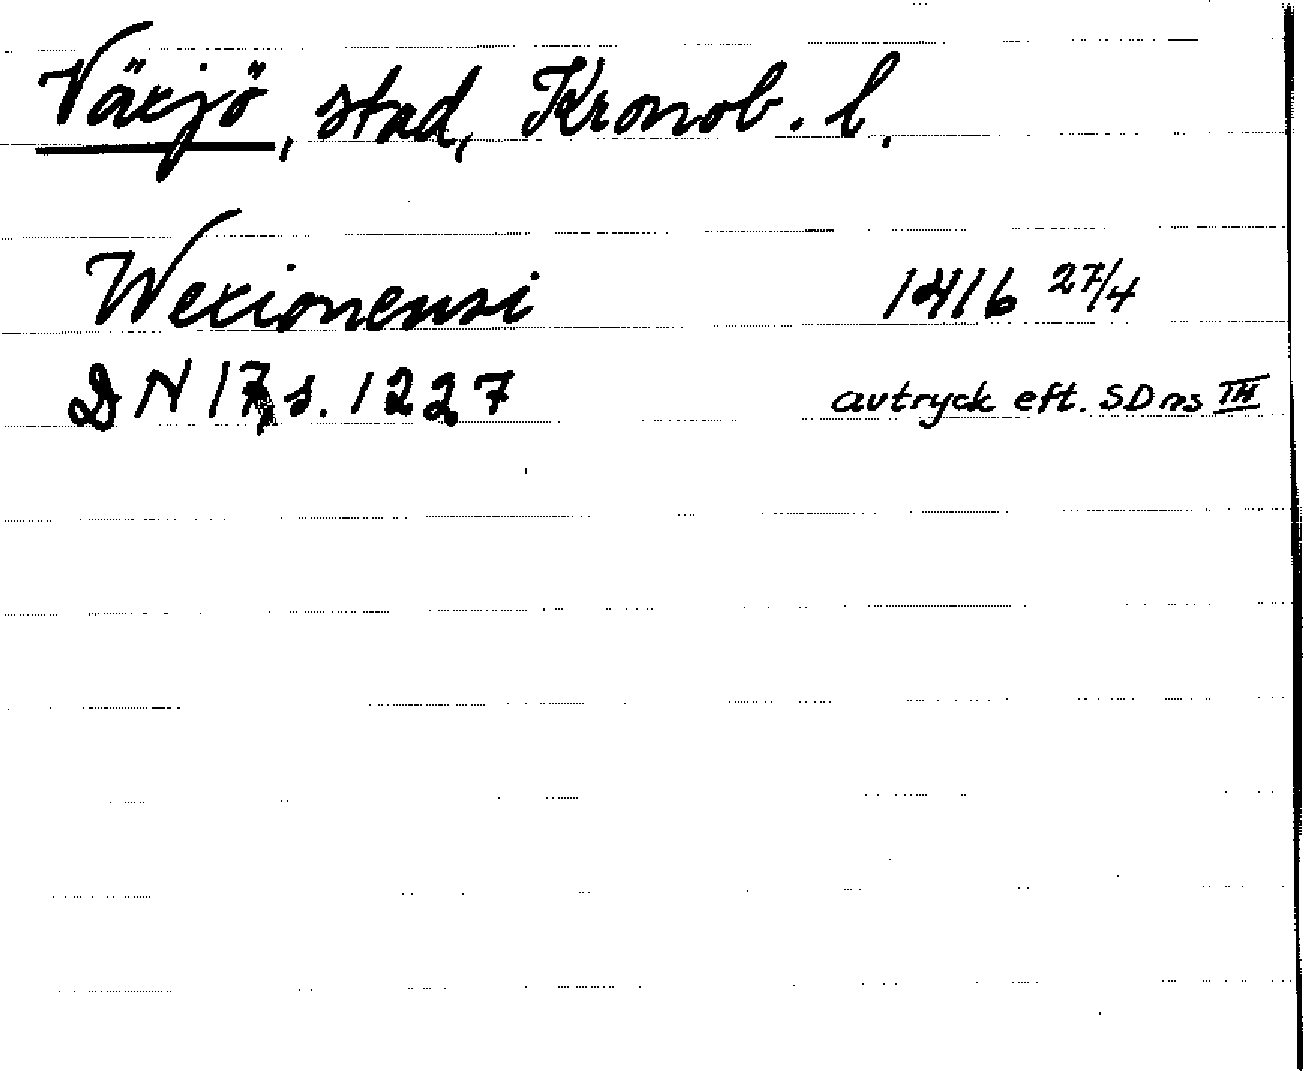 Växjö, stad, Kronob. l.
Wexionensi 1416 27/4
DN 17, s. 1227 avtryck eft. SDns III